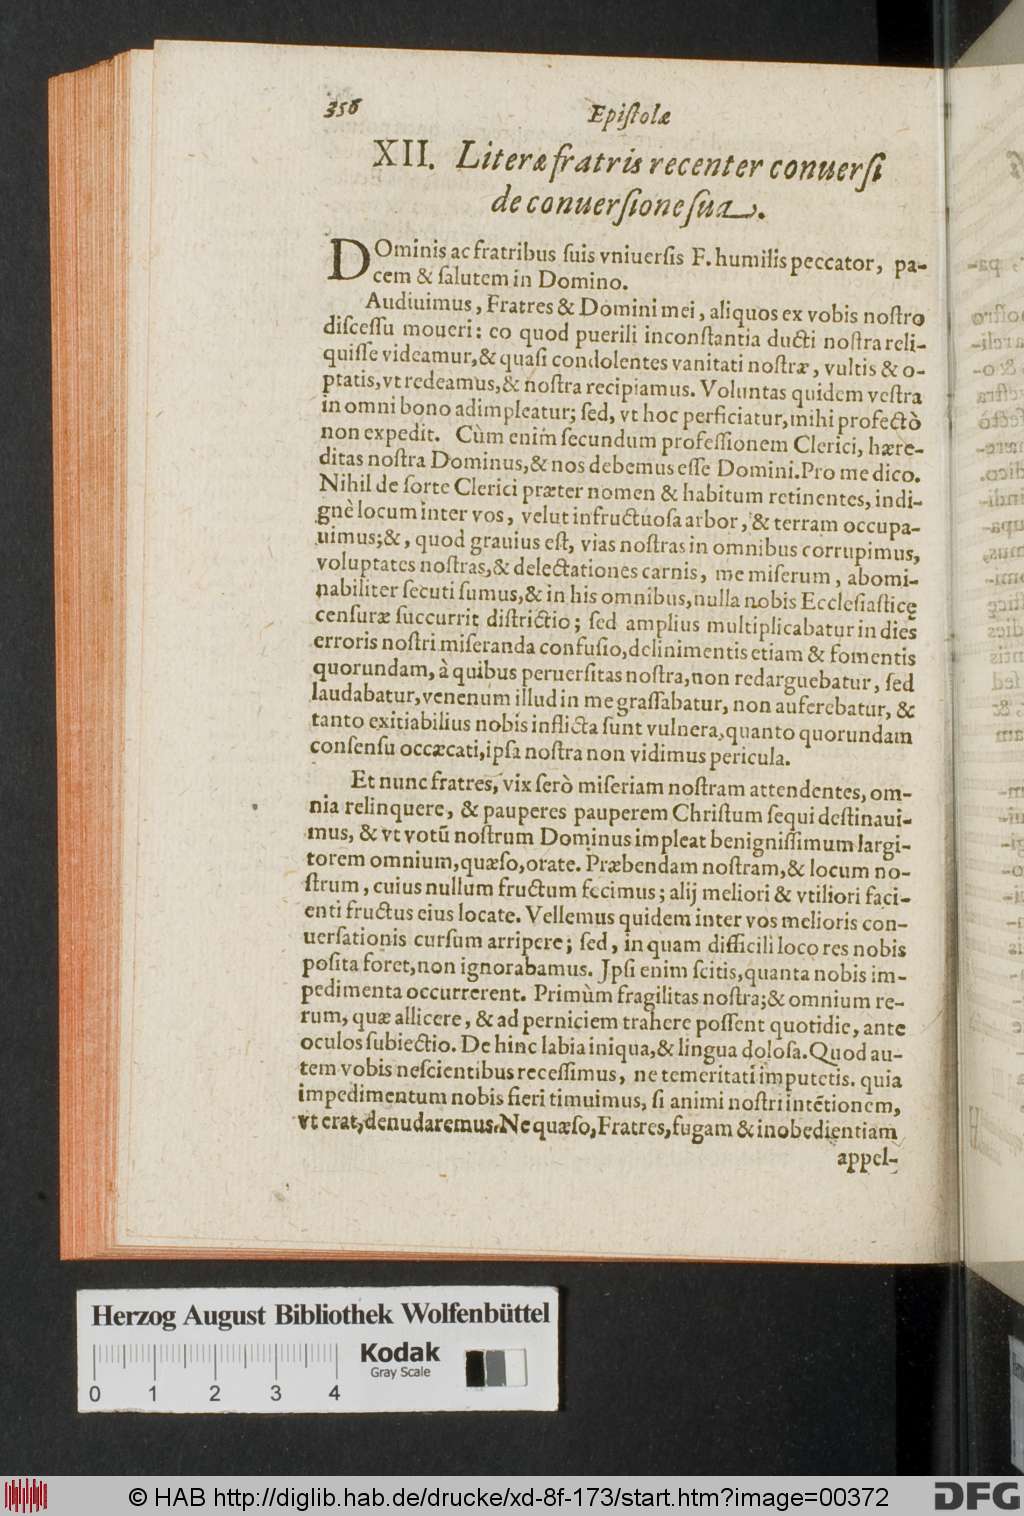 356
Epiſtolæ
XII. Literæ fratris recenter conuerſi
de conuerſione ſua.
DOminis ac fratribus ſuis vniuerſis F. humilis peccator, pa-
cem & ſalutem in Domino.
Audiuimus, Fratres & Domini mei, aliquos ex vobis noſtro
diſceſſu moueri: eo quod puerili inconſtantia ducti noſtra reli-
quiſſe videamur, & quaſi condolentes vanitati noſtræ, vultis & o-
ptatis, vt redeamus, & noſtra recipiamus. Voluntas quidem veſtra
in omni bono adimpleatur; ſed, vt hoc perficiatur, mihi profectò
non expedit. Cùm enim ſecundum profeſſionem Clerici, hære-
ditas noſtra Dominus, & nos debemus eſſe Domini. Pro me dico.
Nihil de ſorte Clerici præter nomen & habitum retinentes, indi-
gnè locum inter vos, velut infructuoſa arbor, & terram occupa-
uimus; &, quod grauius eſt, vias noſtras in omnibus corrupimus,
voluptates noſtras, & delectationes carnis, me miſerum, abomi-
nabiliter ſecuti ſumus, & in his omnibus, nulla nobis Eccleſiaſticę
cenſuræ ſuccurrit diſtrictio; ſed amplius multiplicabatur in dies
erroris noſtri miſeranda confuſio, delinimentis etiam & fomentis
quorundam, à quibus peruerſitas noſtra, non redarguebatur, ſed
laudabatur, venenum illud in me graſſabatur, non auferebatur, &
tanto exitiabilius nobis inflicta ſunt vulnera, quanto quorundam
conſenſu occæcati, ipſa noſtra non vidimus pericula.
Et nunc fratres, vix ſerò miſeriam noſtram attendentes, om-
nia relinquere, & pauperes pauperem Chriſtum ſequi deſtinaui-
mus, & vt votũ noſtrum Dominus impleat benigniſſimum largi-
torem omnium, quæſo, orate. Præbendam noſtram, & locum no-
ſtrum, cuius nullum fructum fecimus; alij meliori & vtiliori faci-
enti fructus eius locate. Vellemus quidem inter vos melioris con-
uerſationis curſum arripere; ſed, in quam difficili loco res nobis
poſita foret, non ignorabamus. Jpſi enim ſcitis, quanta nobis im-
pedimenta occurrerent. Primùm fragilitas noſtra; & omnium re-
rum, quæ allicere, & ad perniciem trahere poſſent quotidie, ante
oculos ſubiectio. De hinc labia iniqua, & lingua doloſa. Quod au-
tem vobis neſcientibus receſſimus, ne temeritati imputetis. quia
impedimentum nobis fieri timuimus, ſi animi noſtri intẽtionem,
vt erat, denudaremus. Ne quæſo, Fratres, fugam & inobedientiam
appel-
Herzog August Bibliothek Wolfenbüttel
Kodak
Gray Scale
0 1 2 3 4
© HAB http://diglib.hab.de/drucke/xd-8f-173/start.htm?image=00372
DFG